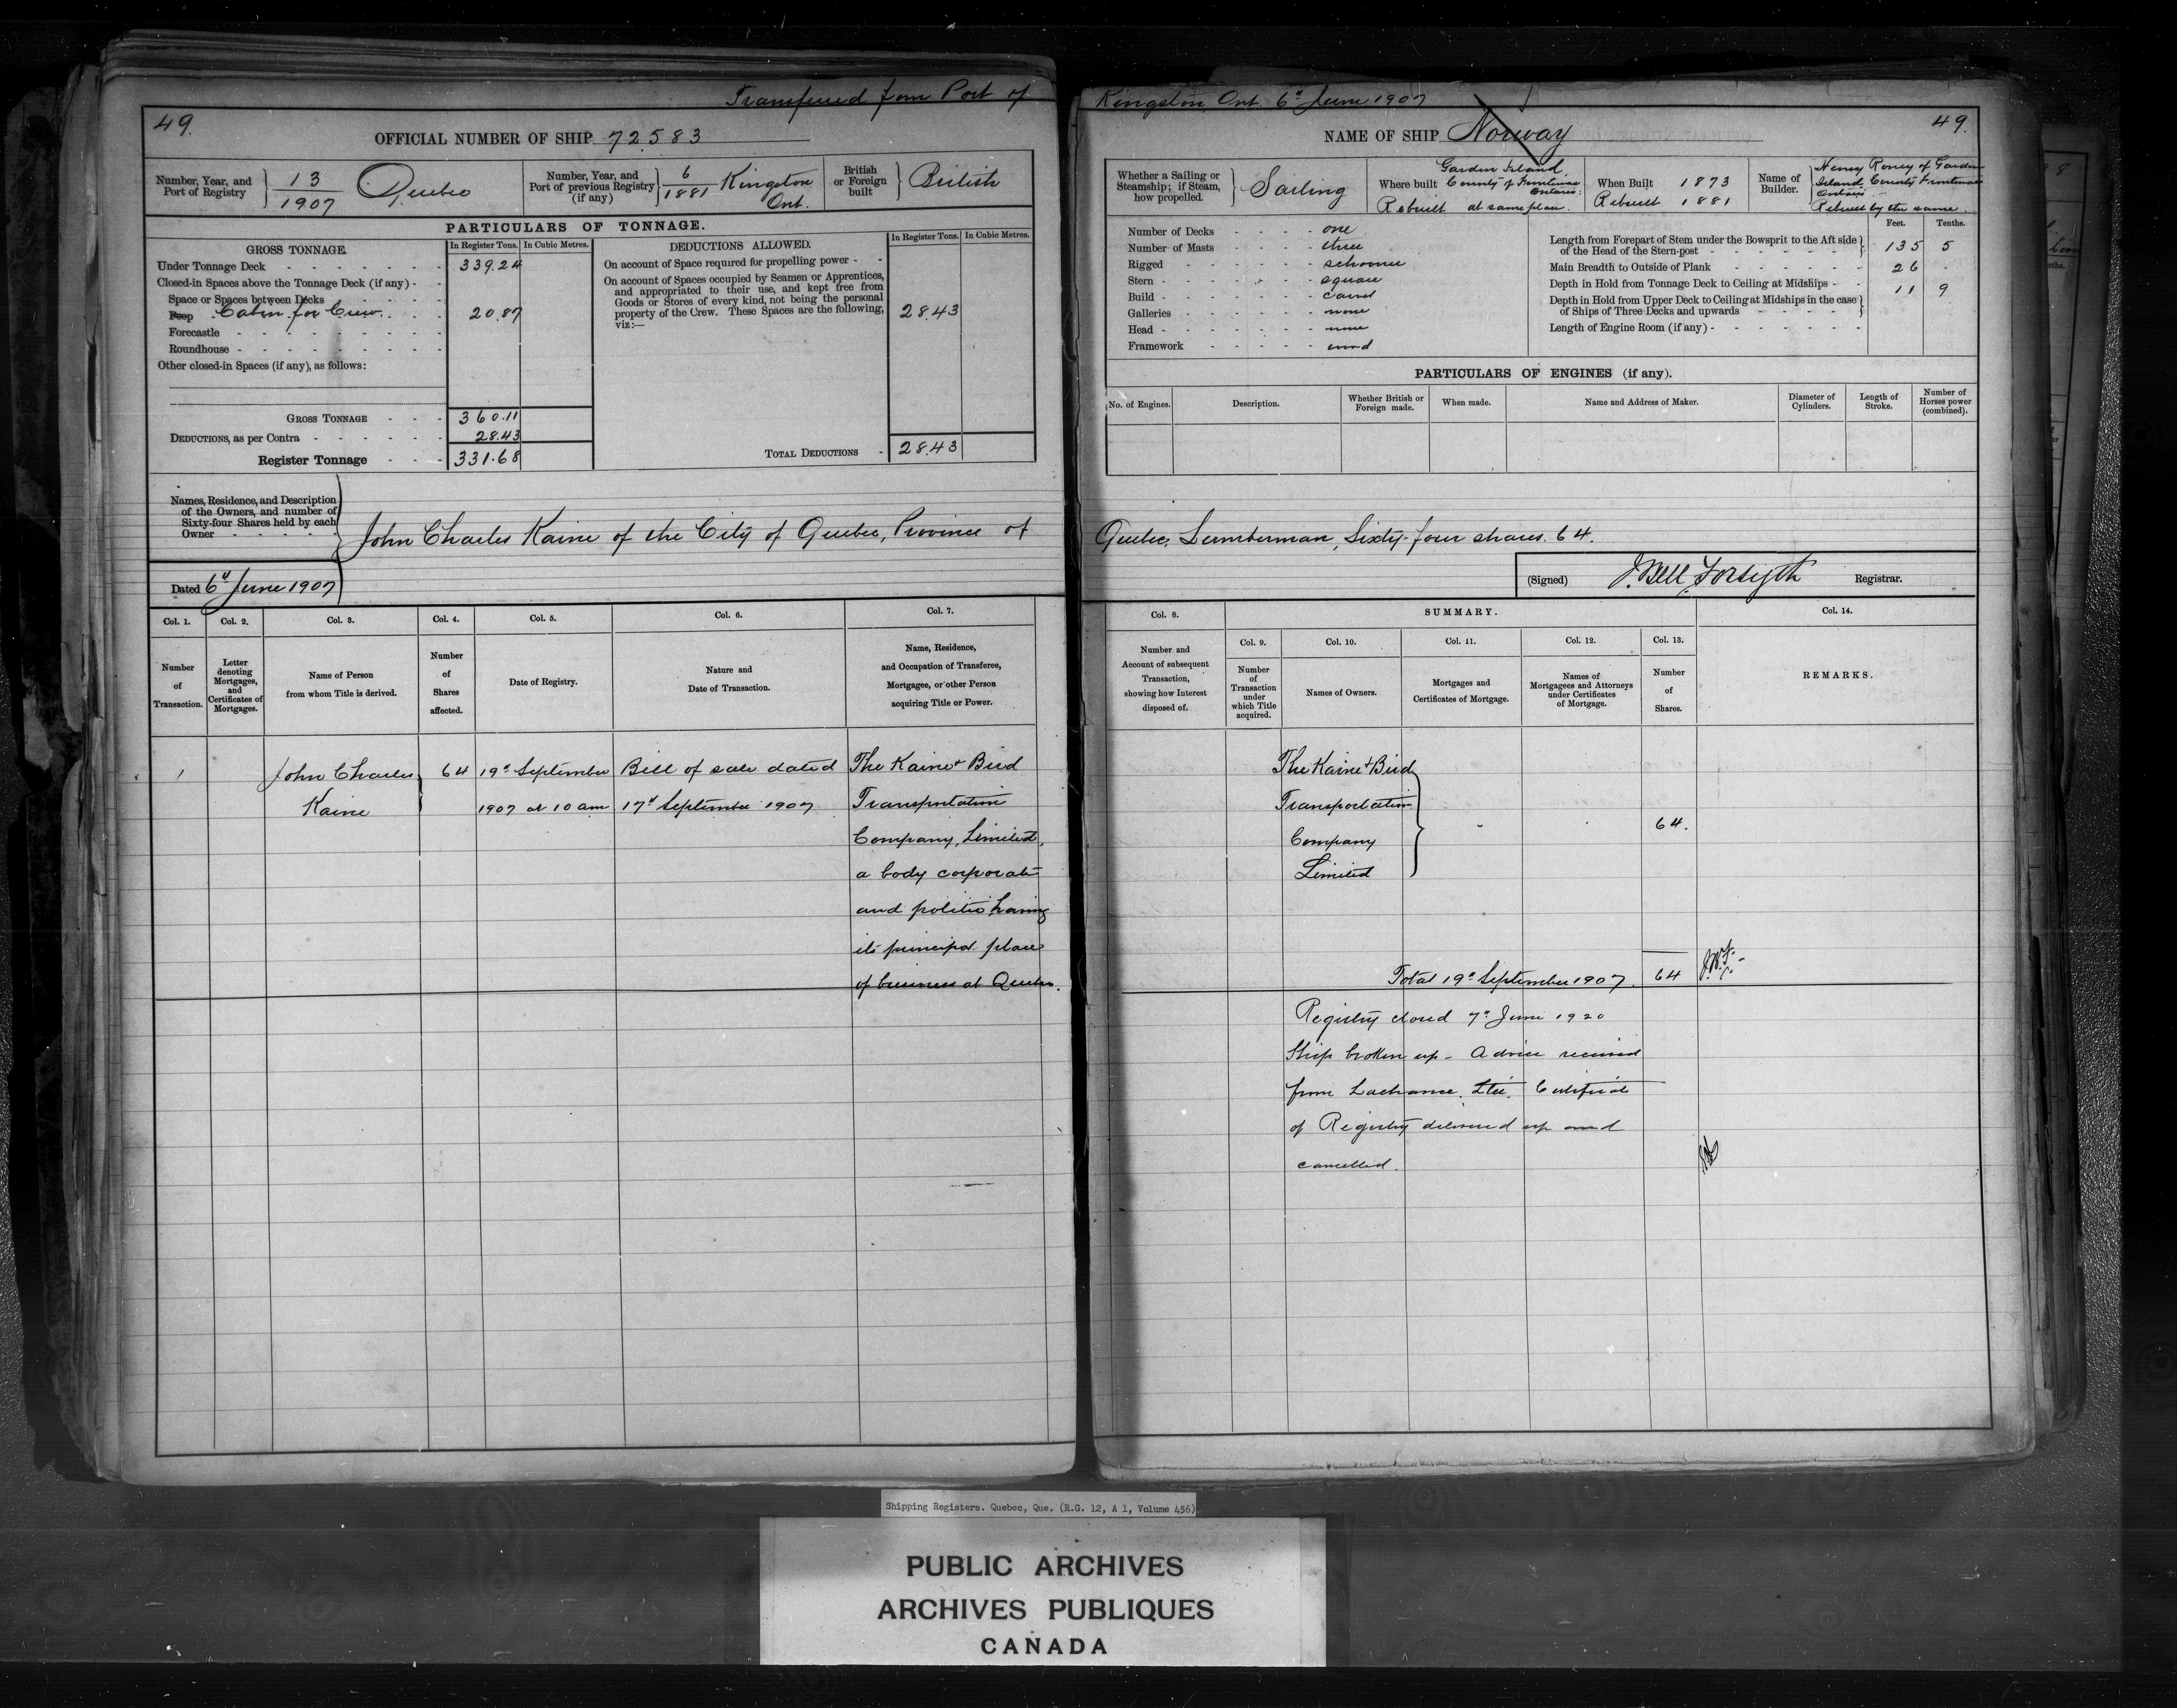 Transferred from Port of Kingston Ont. 6th June 1907
49.
OFFICIAL NUMBER OF SHIP 72583
Number, Year, and Port of Registry 13/1907 Quebec
Number, Year, and Port of previous Registry (if any) 6/1881 Kingston Ont.
British or Foreign built British
PARTICULARS OF TONNAGE.
GROSS TONNAGE.
In Register Tons. In Cubic Metres.
Under Tonnage Deck 339.24
Closed-in Spaces above the Tonnage Deck (if any)
Space or Spaces between Decks
Poop Cabin for Crew 20.87
Forecastle
Roundhouse
Other closed-in Spaces (if any), as follows:
GROSS TONNAGE 360.11
DEDUCTIONS, as per Contra 28.43
Register Tonnage 331.68
DEDUCTIONS ALLOWED.
In Register Tons. In Cubic Metres.
On account of Space required for propelling power
On account of Spaces occupied by Seamen or Apprentices,
and appropriated to their use, and kept free from
Goods or Stores of every kind, not being the personal
property of the Crew. These Spaces are the following,
viz:— 28.43
TOTAL DEDUCTIONS 28.43
Names, Residence, and Description
of the Owners, and number of
Sixty-four Shares held by each
Owner
John Charles Kaine of the City of Quebec, Province of
Dated 6th June 1907
Col. 1. Col. 2. Col. 3. Col. 4. Col. 5. Col. 6. Col. 7.
Number of Transaction.
Letter denoting Mortgages, and Certificates of Mortgages.
Name of Person from whom Title is derived.
Number of Shares affected.
Date of Registry.
Nature and Date of Transaction.
Name, Residence, and Occupation of Transferee, Mortgagee, or other Person acquiring Title or Power.
1 John Charles 64 19th September Bill of sale dated The Kaine & Bird
Kaine 1907 at 10 am 17th September 1907 Transportation
Company, Limited,
a body corporate
and politic having
its principal place
of business at Quebec.
NAME OF SHIP Norway
49.
Whether a Sailing or Steamship; if Steam, how propelled. Sailing
Where built Garden Island County of Frontenac Ontario.
Rebuilt at same place.
When Built 1873
Rebuilt 1881
Name of Builder. Henry Roney of Garden
Island County Frontenac
Ontario
Rebuilt by the same.
Number of Decks one
Number of Masts three
Rigged schooner
Stern square
Build carvel
Galleries none
Head none
Framework wood
Feet. Tenths.
Length from Forepart of Stem under the Bowsprit to the Aft side
of the Head of the Stern-post 135 5
Main Breadth to Outside of Plank 26 .
Depth in Hold from Tonnage Deck to Ceiling at Midships 11 9
Depth in Hold from Upper Deck to Ceiling at Midships in the case
of Ships of Three Decks and upwards
Length of Engine Room (if any)
PARTICULARS OF ENGINES (if any).
No. of Engines.
Description.
Whether British or Foreign made.
When made.
Name and Address of Maker.
Diameter of Cylinders.
Length of Stroke.
Number of Horses power (combined).
Quebec, Lumberman, Sixty-four shares. 64.
(Signed) J. Bell Forsyth Registrar.
Col. 8. SUMMARY. Col. 14.
Col. 9. Col. 10. Col. 11. Col. 12. Col. 13.
Number and Account of subsequent Transaction, showing how Interest disposed of.
Number of Transaction under which Title acquired.
Names of Owners.
Mortgages and Certificates of Mortgage.
Names of Mortgagees and Attorneys under Certificates of Mortgage.
Number of Shares.
REMARKS.
The Kaine & Bird
Transportation
Company
Limited
64.
Total 19th September 1907. 64
Registry closed 7th June 1920
Ship broken up - Advice received
from Lachance, Ltée. Certificate
of Registry delivered up and
cancelled.
Shipping Registers. Quebec, Que. (R.G. 12, A 1, Volume 456)
PUBLIC ARCHIVES
ARCHIVES PUBLIQUES
CANADA